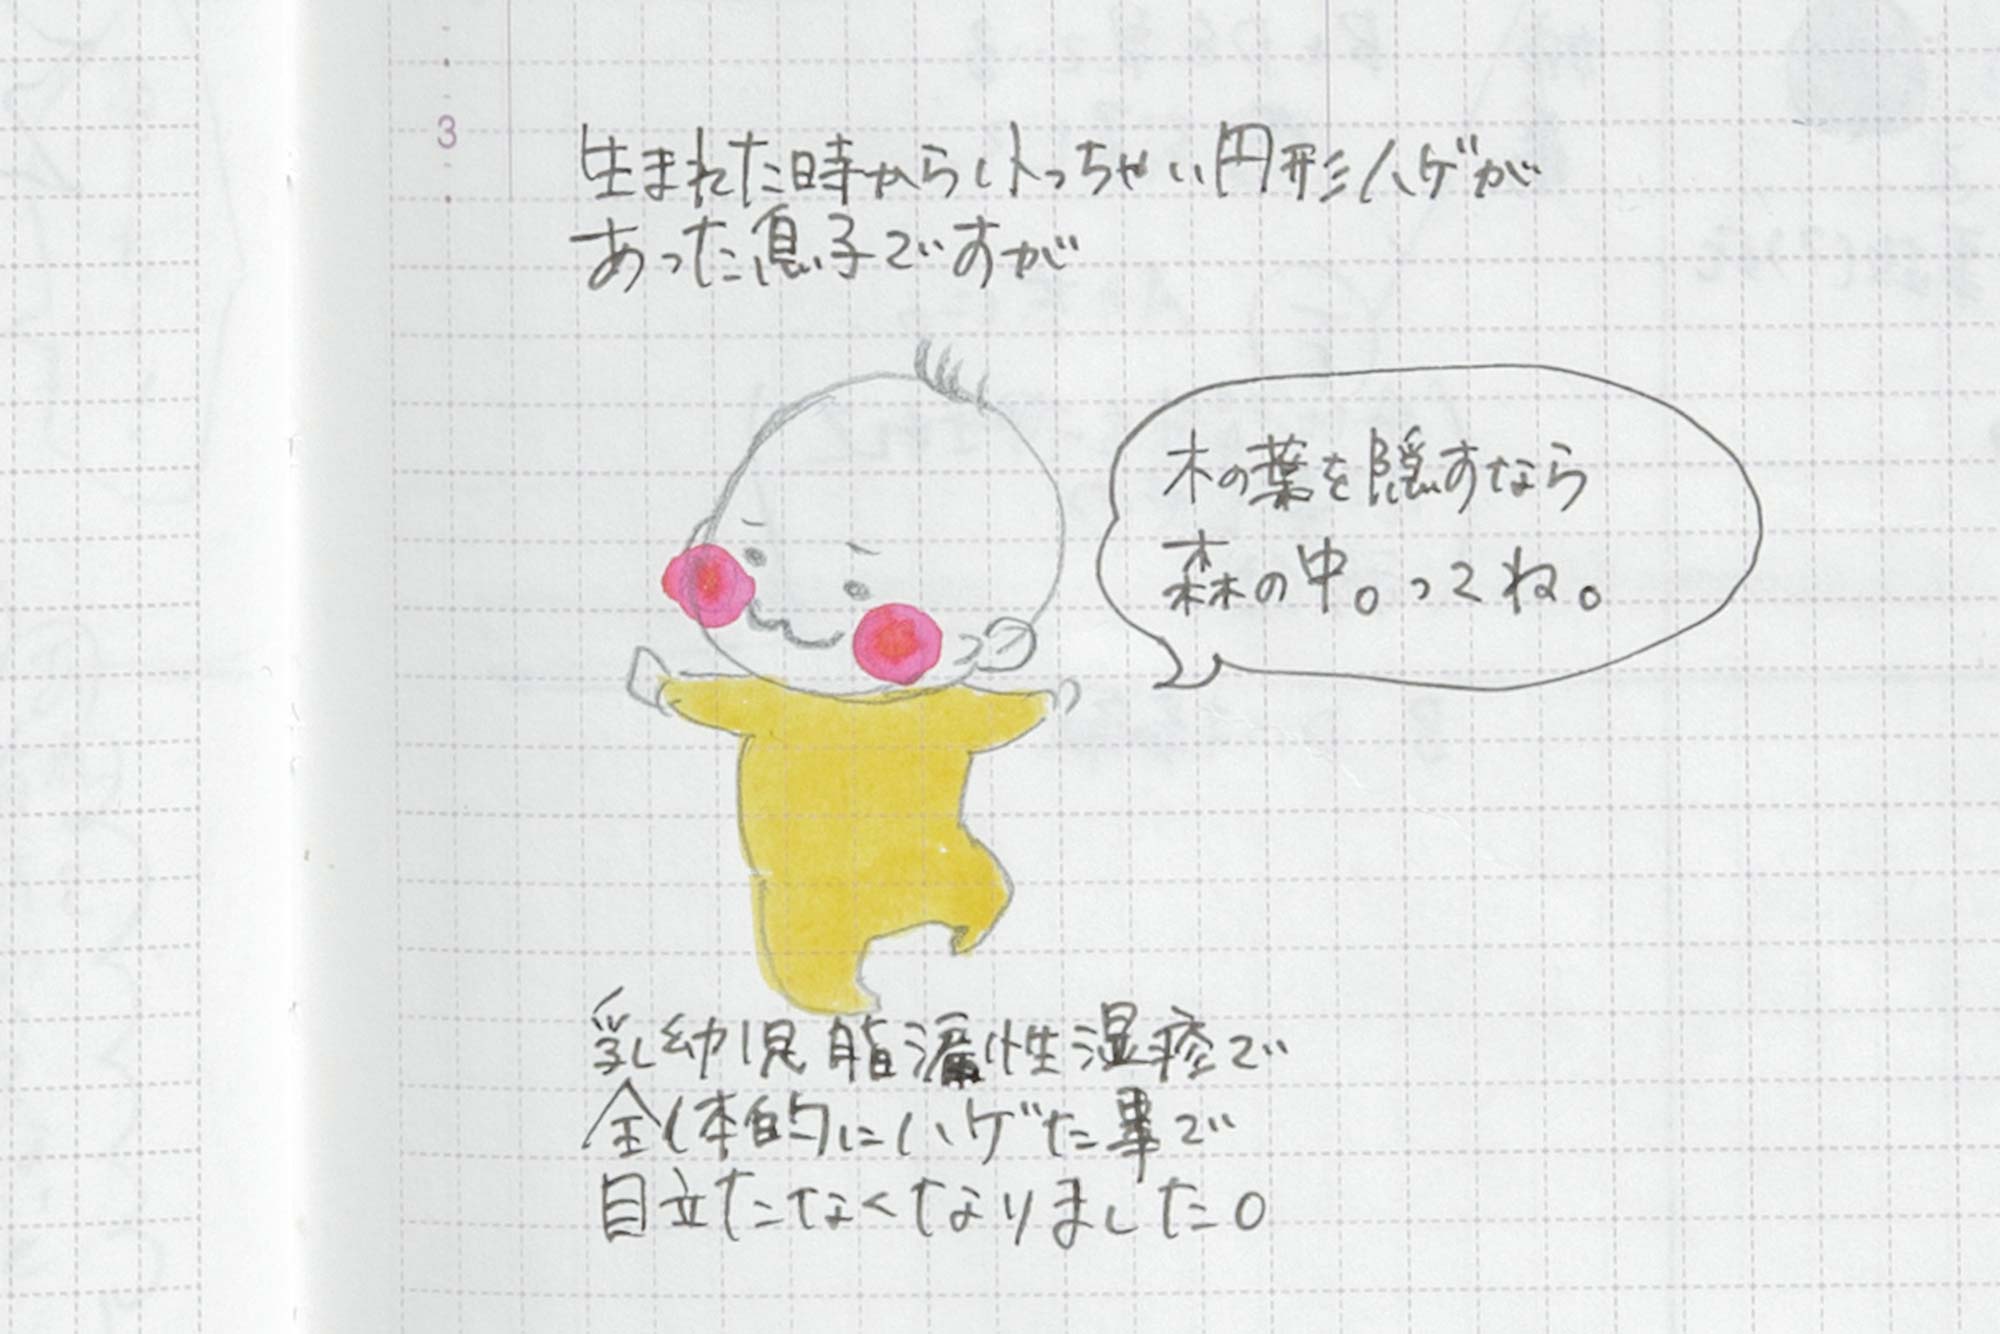 3
生まれた時からちっちゃい円形ハゲが
あった息子ですが
木の葉を隠すなら
森の中。ってね。
乳幼児脂漏性湿疹で
全体的にハゲた事で
目立たなくなりました。